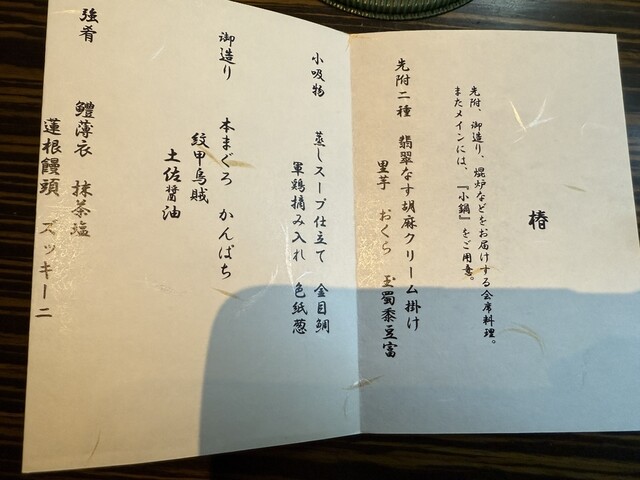 椿
先附、御造り、焜炉などをお届けする会席料理。
またメインには、『小鍋』をご用意。
先附二種　翡翠なす胡麻クリーム掛け
里芋　おくら　玉蜀黍豆富
小吸物　蒸しスープ仕立て　金目鯛
軍鶏摘み入れ　色紙葱
御造り　本まぐろ　かんぱち
紋甲烏賊
土佐醤油
強肴　鱧薄衣　抹茶塩
蓮根饅頭　ズッキーニ